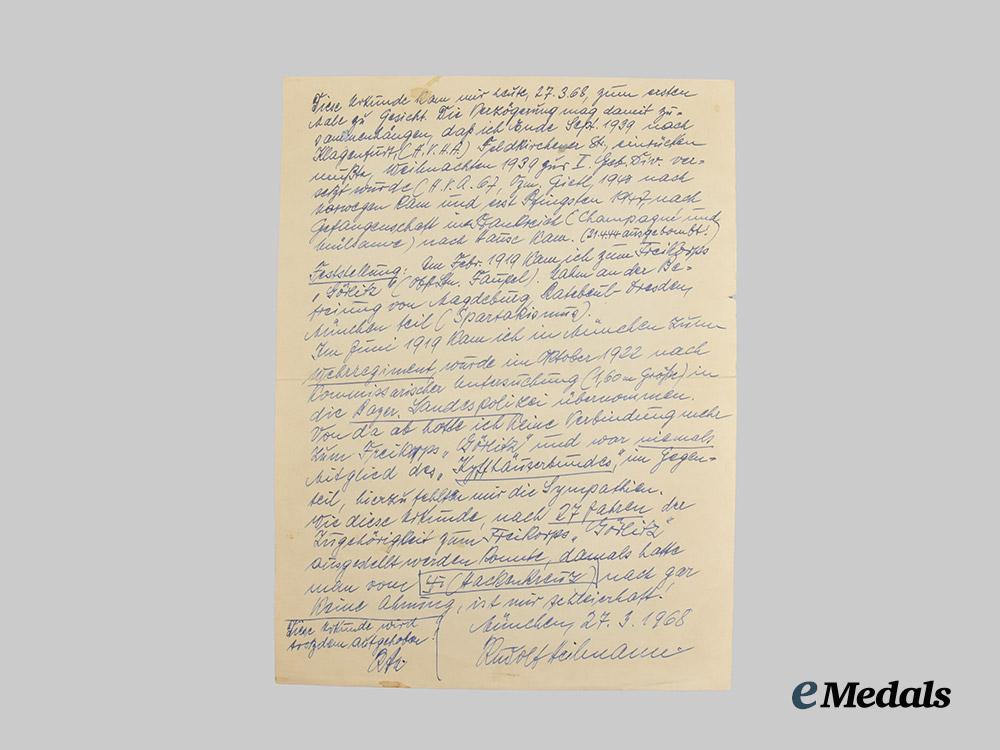 Diese Urkunde kam mir heute, 27.3.68, zum ersten
Male zu Gesicht. Die Verzögerung mag damit zu-
sammenhängen, daß ich Ende Sept. 1939 nach
Klagenfurt, (H.V.A.) Feldkirchener St., einrücken
mußte, Weihnachten 1939 zur I. Geb. Div. ver-
setzt wurde (H.V.A. 67, 1940 nach
Norwegen kam und erst Pfingsten 1947 nach
Gefangenschaft in Frankreich (Champagne und
) nach Hause kam. (ausgebombt!)
Feststellung: Im Febr. 1919 kam ich zum Freikorps
"Görlitz" (Obstltn. Faupel). Nahm an der Be-
freiung von Magdeburg, Dresden,
München teil (Spartakismus).
Im Juni 1919 kam ich in München zum
Wehrregiment, wurde im Oktober 1922 nach
kommissarischer Untersuchung (1,60 m Größe) in
die Bayer. Landespolizei übernommen.
Von da ab hatte ich keine Verbindung mehr
zum Freikorps "Görlitz" und war niemals
Mitglied des "Kyffhäuserbundes", im Gegen-
teil, hierzu fehlten mir die Sympathien.
Wie diese Urkunde, nach 27 Jahren der
Zugehörigkeit zum Freikorps "Görlitz"
ausgestellt werden konnte, damals hatte
man vom 卐 (Hackenkreuz) noch gar
keine Ahnung, ist mir schleierhaft.
München, 27.3.1968
Rudolf Heilmann
Diese Urkunde wird
trotzdem aufgehoben!
eMedals